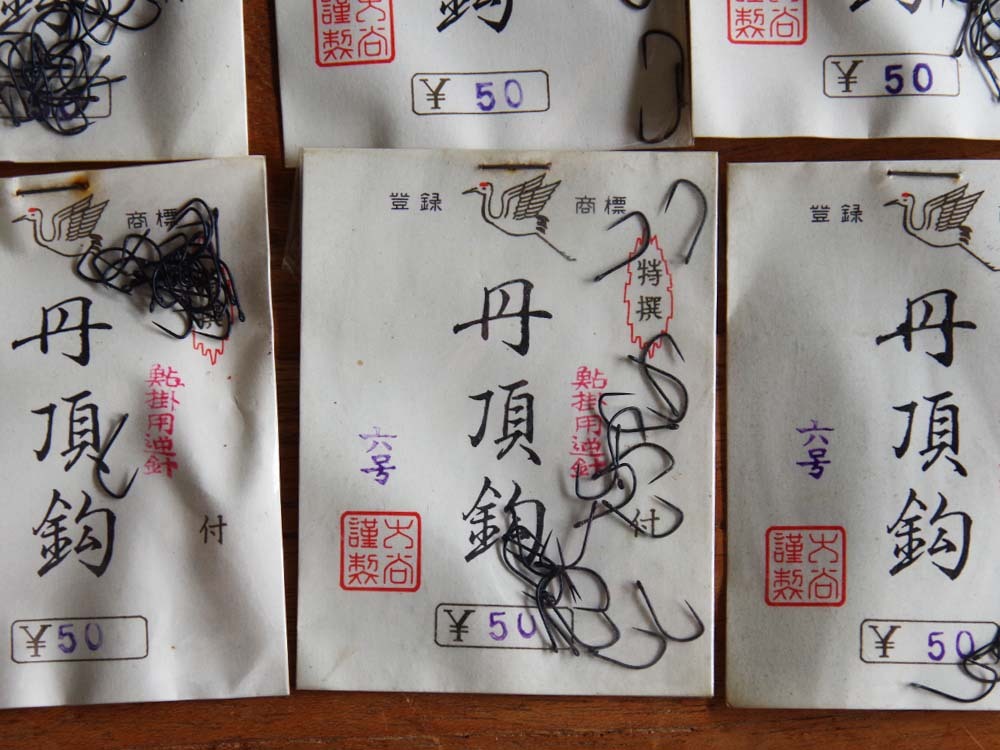 大谷
謹製
¥ 50
大谷
謹製
¥ 50
商標
丹頂鈎
鮎掛用逆針
付
¥ 50
登録
商標
特撰
丹頂鈎
鮎掛用逆針
六号
付
大谷
謹製
¥ 50
登録
丹頂鈎
六号
大谷
謹製
¥ 50